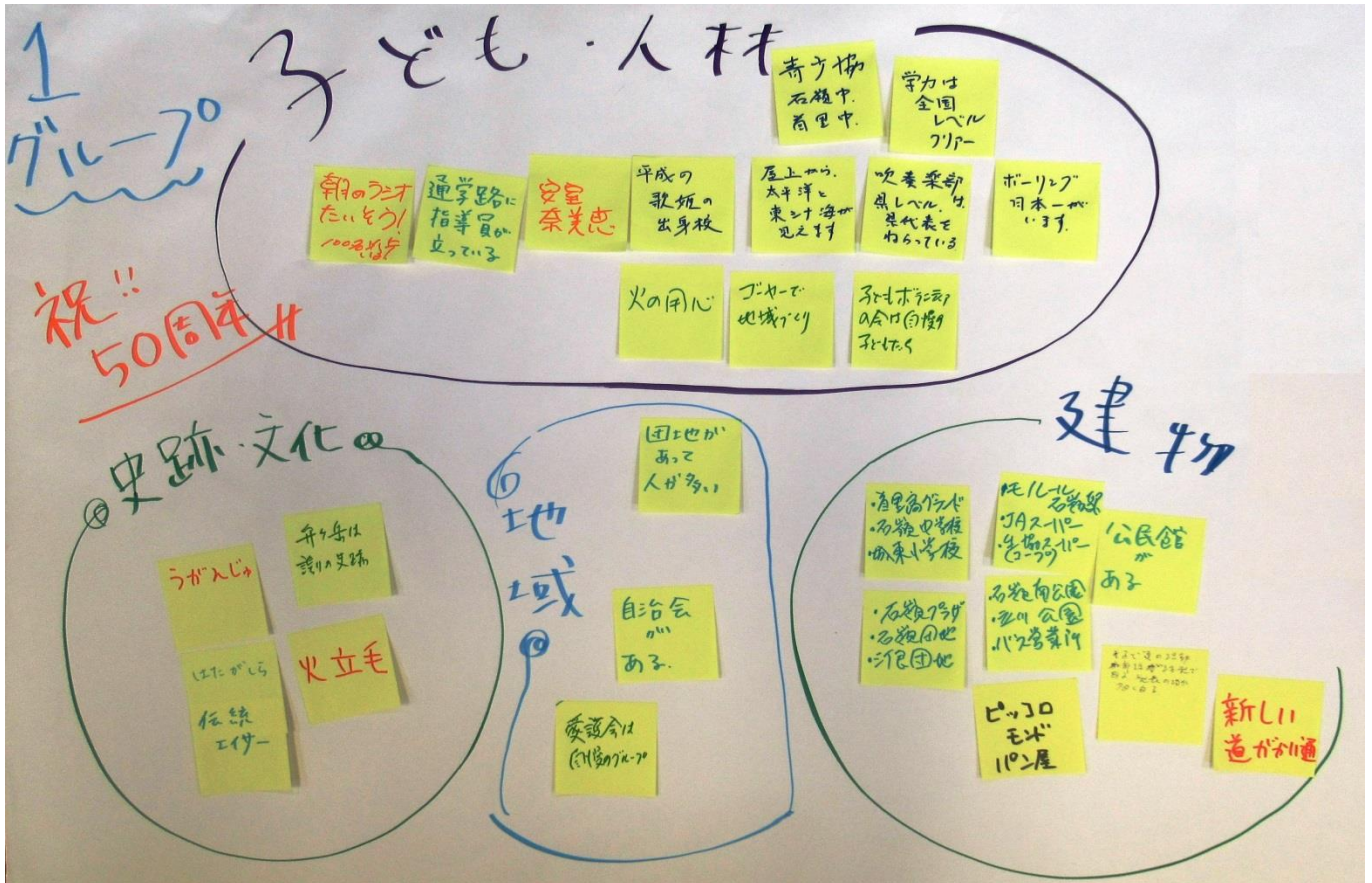 1
グループ
祝!!
50周年
子ども・人材
青少協
石嶺中.
首里中.
学力は
全国
レベル
クリアー
朝のラジオ
たいそう!
通学路に
指導員が
立っている
安室
奈美恵
平成の
歌姫の
出身校
屋上から、
太平洋と
東シナ海が
見えます
吹奏楽部
県レベル.は、
県代表を
ねらっている
ボーリング
日本一が
います.
火の用心
ゴーヤーで
地域づくり
子どもボランティア
の会は自慢の
子どもたち
史跡・文化
うがんじゅ
弁ヶ岳は
誇りの史跡
はたがしら
伝統
エイサー
火立毛
地域
団地が
あって
人が多い
自治会
が
ある.
愛護会は
自慢のグループ
建物
・首里高グランド
・石嶺中学校
・城東小学校
・モノレール
石嶺駅
・JAスーパー
・生協スーパー
コープ
公民館
が
ある
・石嶺プラザ
・石嶺団地
・市民団地
・石嶺南公園
・公園
・バス営業所
ピッコロ
モンド
パン屋
新しい
道が開通